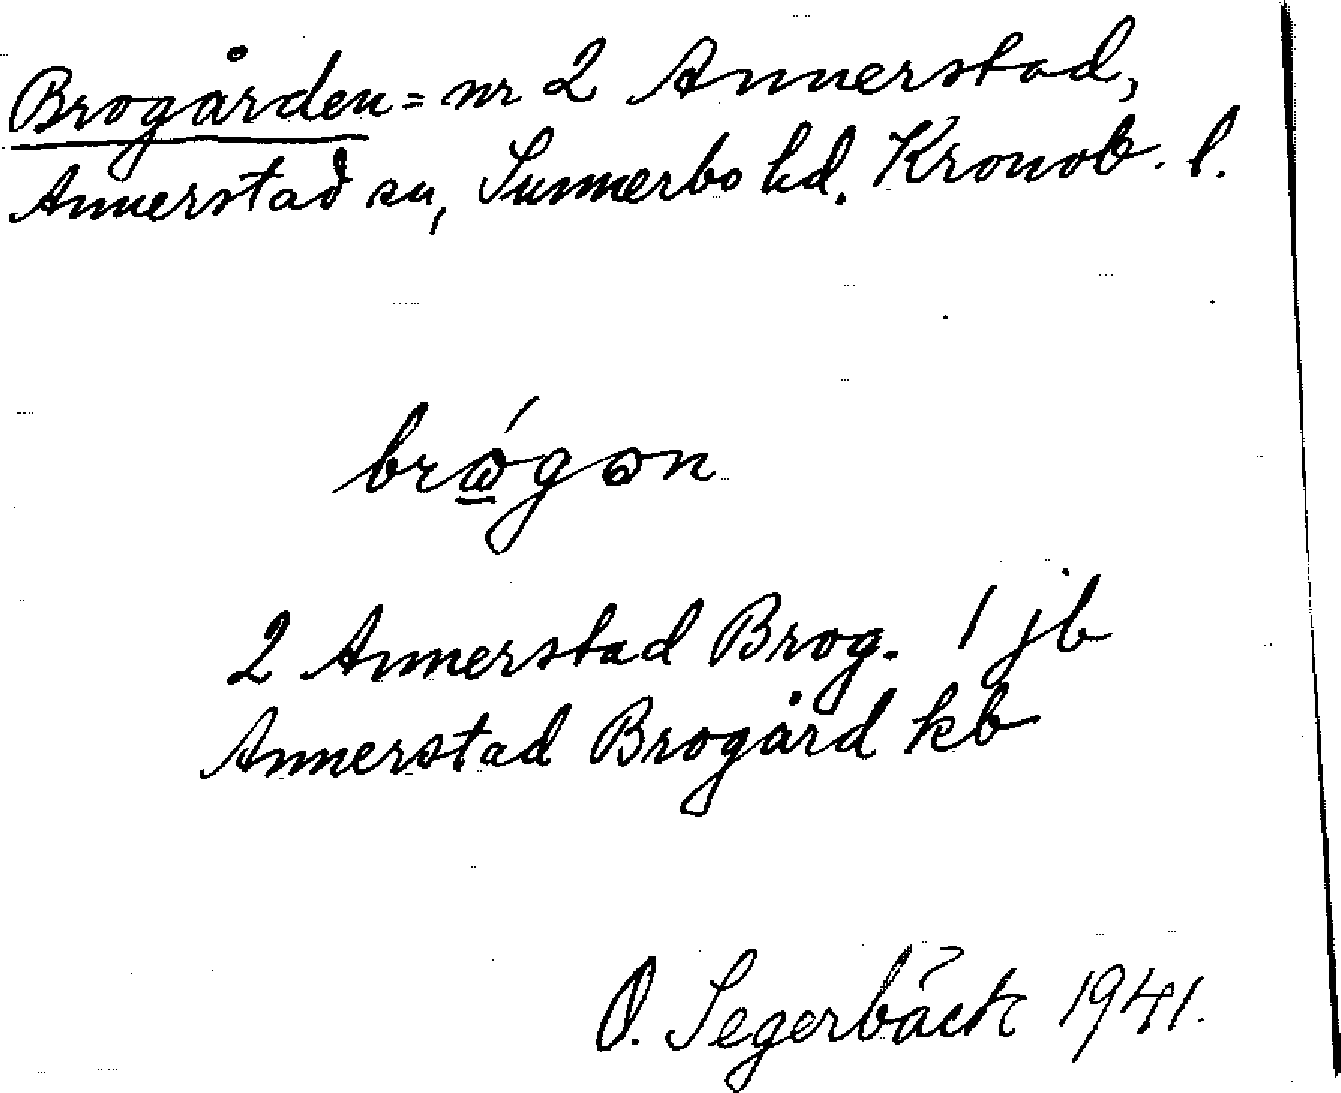 Brogården = nr 2 Annerstad,
Annerstad sn, Sunnerbo hd. Kronob. l.
brώ̲gɷn
2 Annerstad Brog. 1 jb
Annerstad Brogård kb
O. Segerbäck 1941.